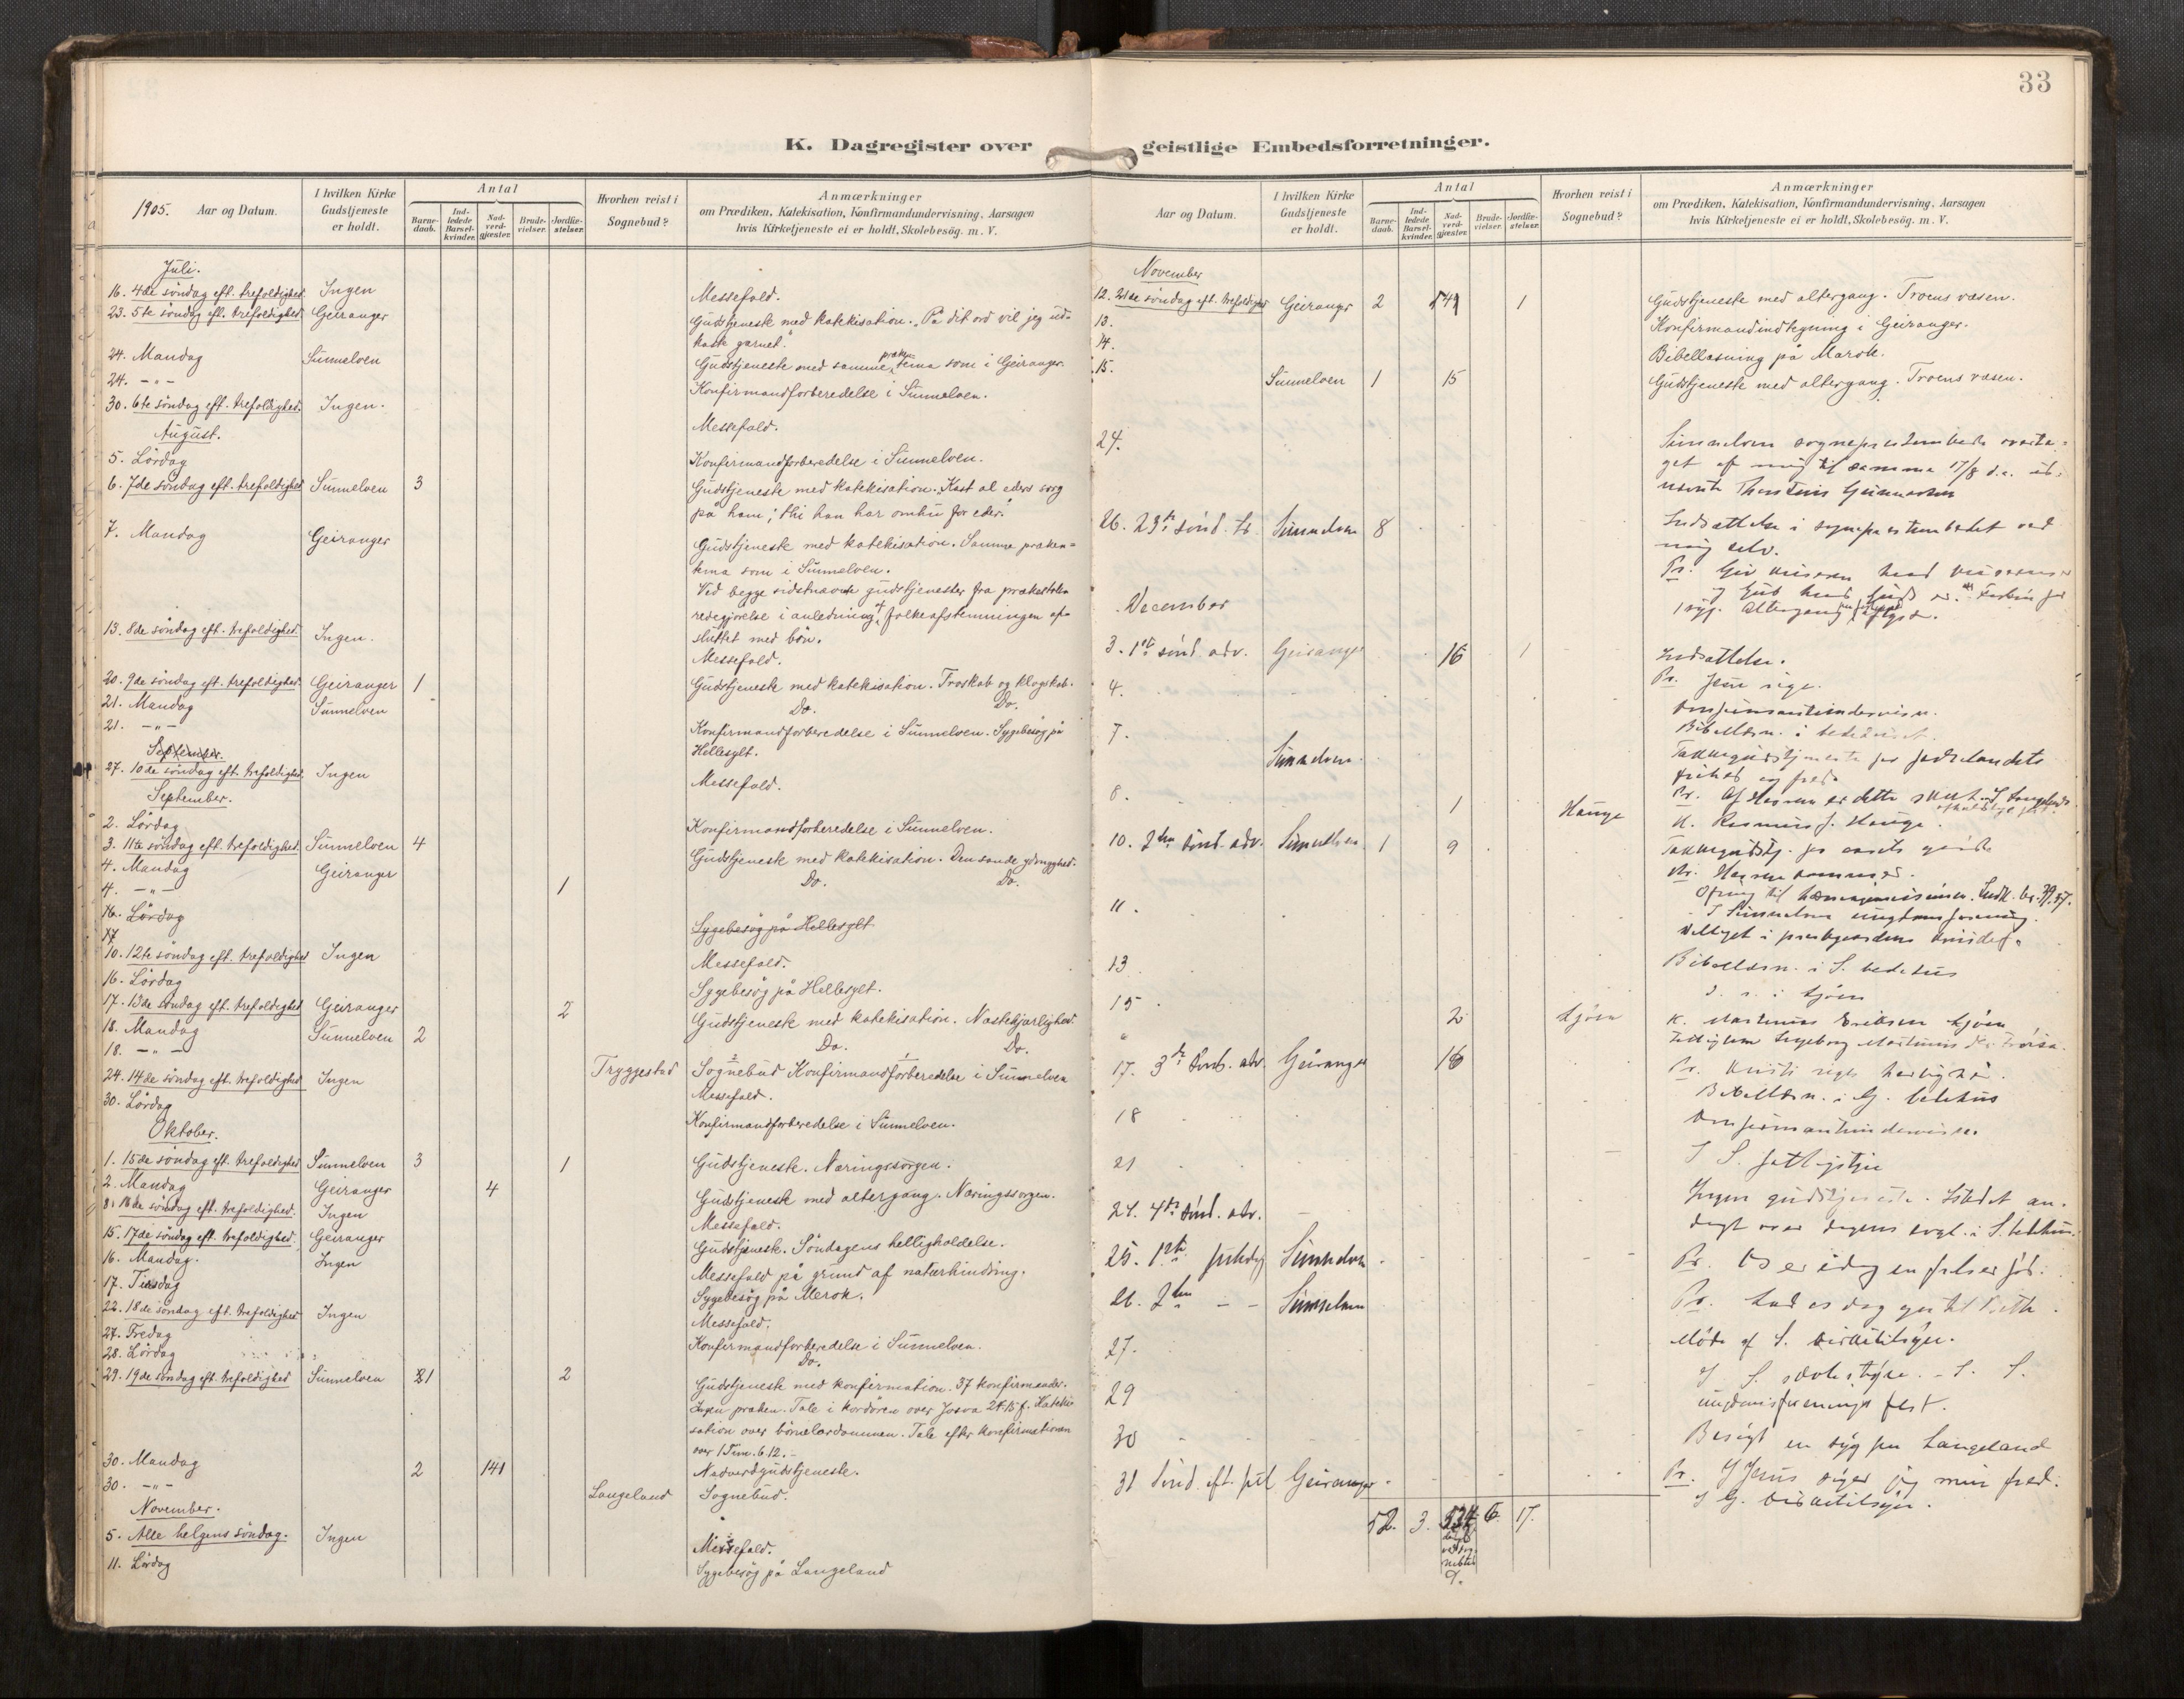 33
K. Dagregister over geistlige Embedsforretninger.
1905. Aar og Datum.
I hvilken Kirke Gudstjeneste er holdt.
Antal
Barne-daab.
Ind-ledede Barsel-kvinder.
Nad-verd-gjæster.
Brude-vielser.
Jordfæ-stelser.
Hvorhen reist i Sognebud?
Anmærkninger
om Prædiken, Katekisation, Konfirmandundervisning, Aarsagen
hvis Kirketjeneste ei er holdt, Skolebesøg. m. V.
Juli.
16. 4de søndag eft. trefoldighed. Ingen Messefald.
23. 5te søndag eft. trefoldighed Geiranger Gudstjeneste med katekisation. "På dit ord vil jeg ud-
kaste garnet."
24. Mandag Sunnelven Gudstjeneste med samme præken tema som i Geiranger.
24. -"- Konfirmandforberedelse i Sunnelven.
30. 6te søndag eft. trefoldighed. Ingen. Messefald.
August.
5. Lördag Konfirmandforberedelse i Sunnelven.
6. 7de søndag eft. trefoldighed Sunnelven 3 Gudstjeneste med katekisation. "Kast al eders sorg
på ham; thi han har omhu for eder."
7. Mandag Geiranger Gudstjeneste med katekisation. Samme præken-
tema som i Sunnelven.
Ved begge sidstnævnte gudstjenester fra prækestolen
redegjørelse i anledning af folkeafstemningen af-
sluttet med bön.
13. 8de søndag eft. trefoldighed. Ingen. Messefald.
20. 9de søndag eft. trefoldighed. Geiranger 1 Gudstjeneste med katekisation. Troskab og klogskab.
21. Mandag Sunnelven Do. Do.
21. -"- Konfirmandforberedelse i Sunnelven. Sygebesøg på
Hellesylt.
September.
27. 10de søndag eft. trefoldighed. Ingen Messefald.
September.
2. Lördag Konfirmandforberedelse i Sunnelven.
3. 11te søndag eft. trefoldighed. Sunnelven 4 Gudstjeneste med katekisation. Den sande ydmyghed.
4. Mandag Geiranger Do. Do.
4. -"- 1
16. Lördag Sygebesøg på Hellesylt
17
10. 12te søndag eft. trefoldighed Ingen Messefald.
16. Lördag Sygebesøg på Hellesylt.
17. 13de søndag eft. trefoldighed Geiranger 2 Gudstjeneste med katekisation. Næstekjærlighed.
18. Mandag Sunnelven 2 Do. Do.
18. -"- Tryggestad Sognebud Konfirmandforberedelse i Sunnelven
24. 14de søndag eft. trefoldighed Ingen Messefald.
30. Lördag Konfirmandforberedelse i Sunnelven.
Oktober.
1. 15de søndag eft. trefoldighed Sunnelven 3 1 Gudstjeneste. Næringssorgen.
2. Mandag Geiranger 4 Gudstjeneste med altergang. Næringssorgen.
8. 16de søndag eft. trefoldighed. Ingen Messefald.
15. 17de søndag eft. trefoldighed. Geiranger Gudstjeneste. Söndagens helligholdelse.
16. Mandag. Ingen Messefald på grund af naturhindring.
17. Tirsdag Sygebesøg på Merok.
22. 18de søndag eft. trefoldighed Ingen Messefald.
27. Fredag Konfirmandforberedelse i Sunnelven.
28. Lördag Do.
29. 19de søndag eft. trefoldighed Sunnelven 21 2 Gudstjeneste med konfirmation. 37 konfirmander.
Ingen præken. Tale i kordören over Josva 24.15 f. Kateki-
sation over börnelærdommen. Tale efter konfirmationen
over 1 Tim. 6.12. -
30. Mandag 2 141 Nadverdgudstjeneste.
30. -"- Langeland Sognebud.
November.
5. Alle helgens söndag. Ingen Messefald.
11. Lördag Sygebesøg på Langeland
Aar og Datum.
I hvilken Kirke Gudstjeneste er holdt.
Antal
Barne-daab.
Ind-ledede Barsel-kvinder.
Nad-verd-gjæster.
Brude-vielser.
Jordfæ-stelser.
Hvorhen reist i Sognebud?
Anmærkninger
om Prædiken, Katekisation, Konfirmandundervisning, Aarsagen
hvis Kirketjeneste ei er holdt, Skolebesøg. m. V.
November
12. 21de søndag eft. trefoldighed Geiranger 2 41 1 Gudstjeneste med altergang. Troens væsen.
13. Konfirmandindtegning i Geiranger.
14. Bibellæsning på Marok.
15. Sunnelven 1 15 Gudstjeneste med altergang. Troens væsen.
24. Sunnelven sogneprestembede overta-
get af mig til samme 17/8 d.a. ud-
nævnte
26. 23de sönd. tr. Sunnelven 8 Indsættelse i sogneprestembedet ved
mig selv.
Pr. Giv keiseren hvad keiserens er
og Gud hvad Guds er.
1 syg. Altergang
December
3. 1ste sönd. adv. Geiranger 16 1 Indsættelse.
Pr. Jesu rige.
4. Konfirmantundervisn.
Bibellæsn. i bedehuset.
7. Sunnelven. Takkegudstjeneste for fædrelandets
frihed og fred.
Pr. Af Herren er dette sket.
8. 1 Hauge K. Rasmus J. Hauge.
10. 2den sönd. adv. Sunnelven 1 9 Takkegudstj. for aarets gröde
Pr. Herren kommer.
Ofring til hedningemissionen. Indk. kr. 39.37.
11. I Sunnelven ungdomsforening.
13 Bibellæsn. i S. bedehus
15 d. s. i Ljøen
" 2 Ljøen K. Martinus Eriksen Ljøen
17. 3de sönd. adv. Geiranger 16 Pr. Kristi riges herlighed.
Bibellæsn. i G. bedehus
18 Konfirmantundervisn.
21 I S. fattigstyre
24. 4de sönd. adv. Ingen gudstjeneste. Istedet an-
dagt over dagens evgl. i S. bedehus.
25. 1ste juledag Sunnelven Pr. Os er idag en frelser föd.
26. 2den - - Sunnelven Pr.
27. Möde af S. diakonistyre.
29 I S. skolestyre. - I. S.
ungdomsforenings fest.
30 Besögt en syg paa Langeland
31 Sönd. eft. jul Geiranger Pr. I Jesus siger jeg min fred.
52. 3. 534 6. 17.
9.